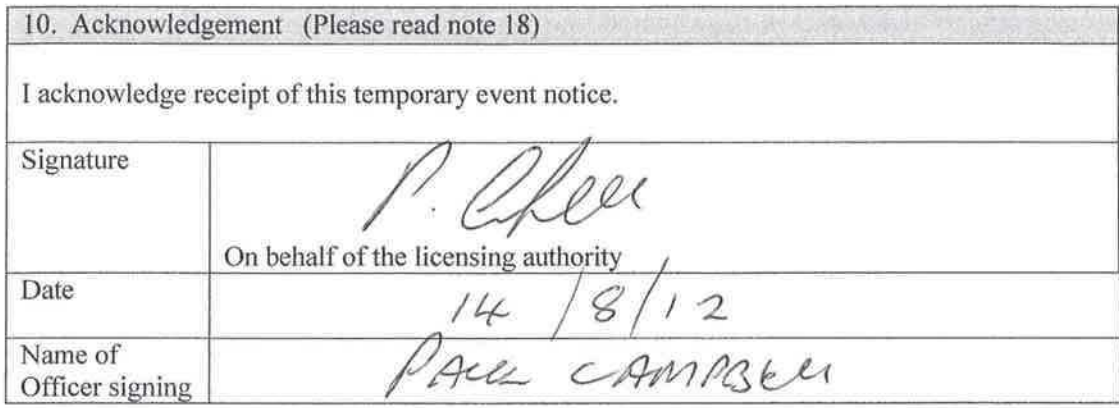 10. Acknowledgement (Please read note 18)
I acknowledge receipt of this temporary event notice.
Signature
P. 
On behalf of the licensing authority
Date
14/8/12
Name of
Officer signing
PAUL CAMPBELL